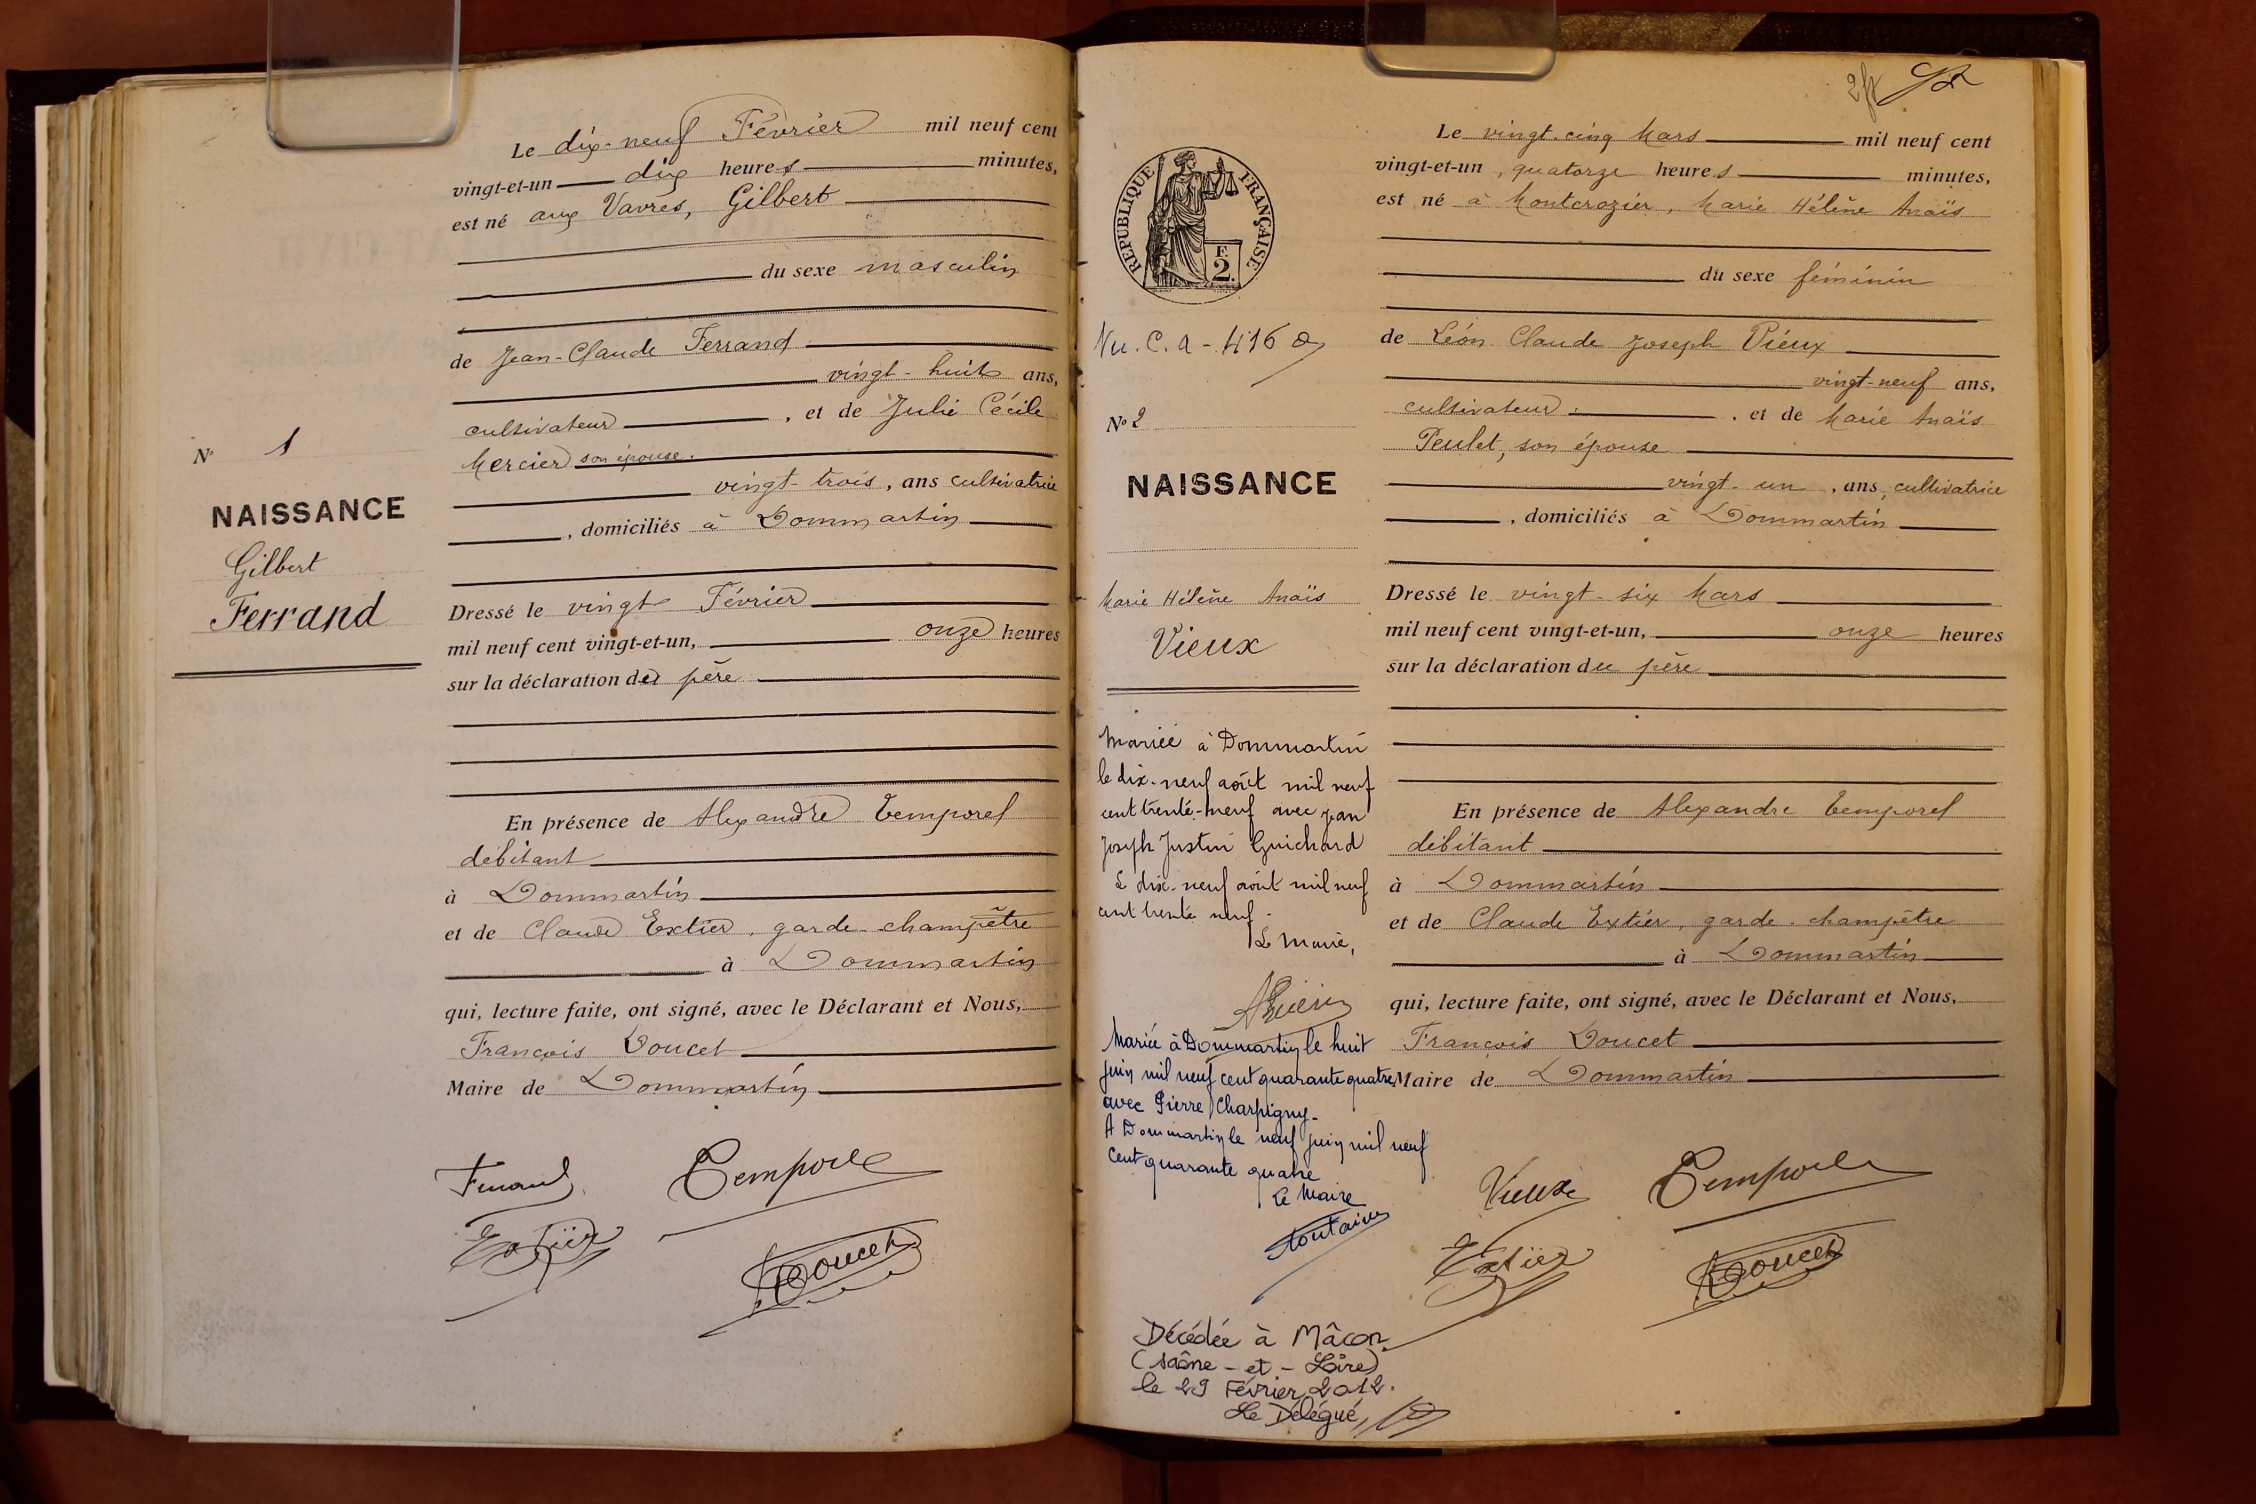 Le dix-neuf Février mil neuf cent
vingt-et-un dix heures minutes,
est né aux Vavres, Gilbert
du sexe masculin
de Jean-Claude Ferrand
vingt-huit ans,
cultivateur, et de Julie Cécile
Mercier son épouse.
vingt-trois, ans cultivatrice
, domiciliés à Dommartin
Dressé le vingt Février
mil neuf cent vingt-et-un, onze heures
sur la déclaration du père
En présence de Alexandre Temporel
débitant
à Dommartin
et de Claude Extier, garde-champêtre
à Dommartin
qui, lecture faite, ont signé, avec le Déclarant et Nous,
François Doucet
Maire de Dommartin
Ferrand Temporel
Extier Doucet
No 1
NAISSANCE
Gilbert
Ferrand
RÉPUBLIQUE FRANÇAISE
F.
2.
No 2
NAISSANCE
Marie Hélène Anaïs
Vieux
Mariée à Dommartin
le dix-neuf août mil neuf
cent trente-neuf avec Jean
Joseph Justin Guichard
Le dix-neuf août mil neuf
cent trente neuf.
Le Maire,
Mariée à Dommartin le huit
juin mil neuf cent quarante quatre
avec Pierre Charpigny.
A Dommartin le neuf juin mil neuf
cent quarante quatre
Le Maire
Décédée à Mâcon
(Saône-et-Loire)
le 29 Février 2012.
Le Délégué,
Le vingt-cinq Mars mil neuf cent
vingt-et-un, quatorze heures minutes,
est né à Montcrozier, Marie Hélène Anaïs
du sexe féminin
de Léon Claude Joseph Vieux
vingt-neuf ans,
cultivateur, et de Marie Anaïs
Peulet, son épouse
vingt-un, ans, cultivatrice
, domiciliés à Dommartin
Dressé le vingt-six Mars
mil neuf cent vingt-et-un, onze heures
sur la déclaration du père
En présence de Alexandre Temporel
débitant
à Dommartin
et de Claude Extier, garde-champêtre
à Dommartin
qui, lecture faite, ont signé, avec le Déclarant et Nous,
François Doucet
Maire de Dommartin
Vieux Temporel
Extier Doucet